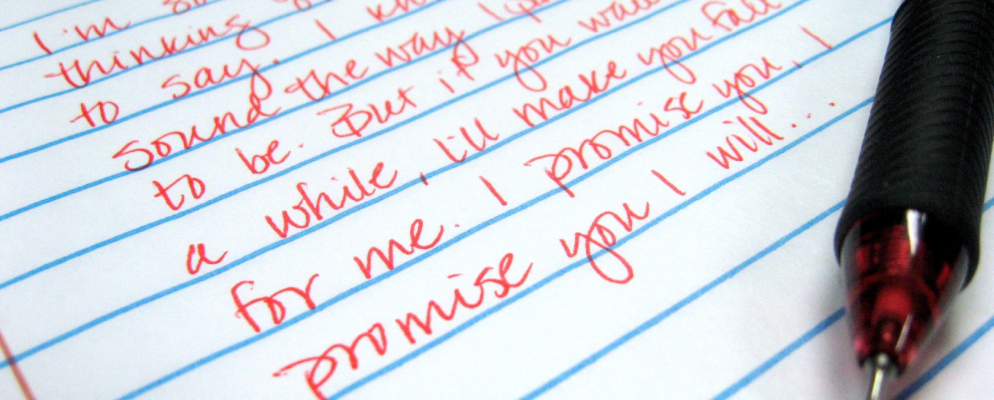 I'm
thinking I
to say. I
sound the way
to be. But if you
a while, I,ll make you fall
for me. I promise you, I
promise you I will..